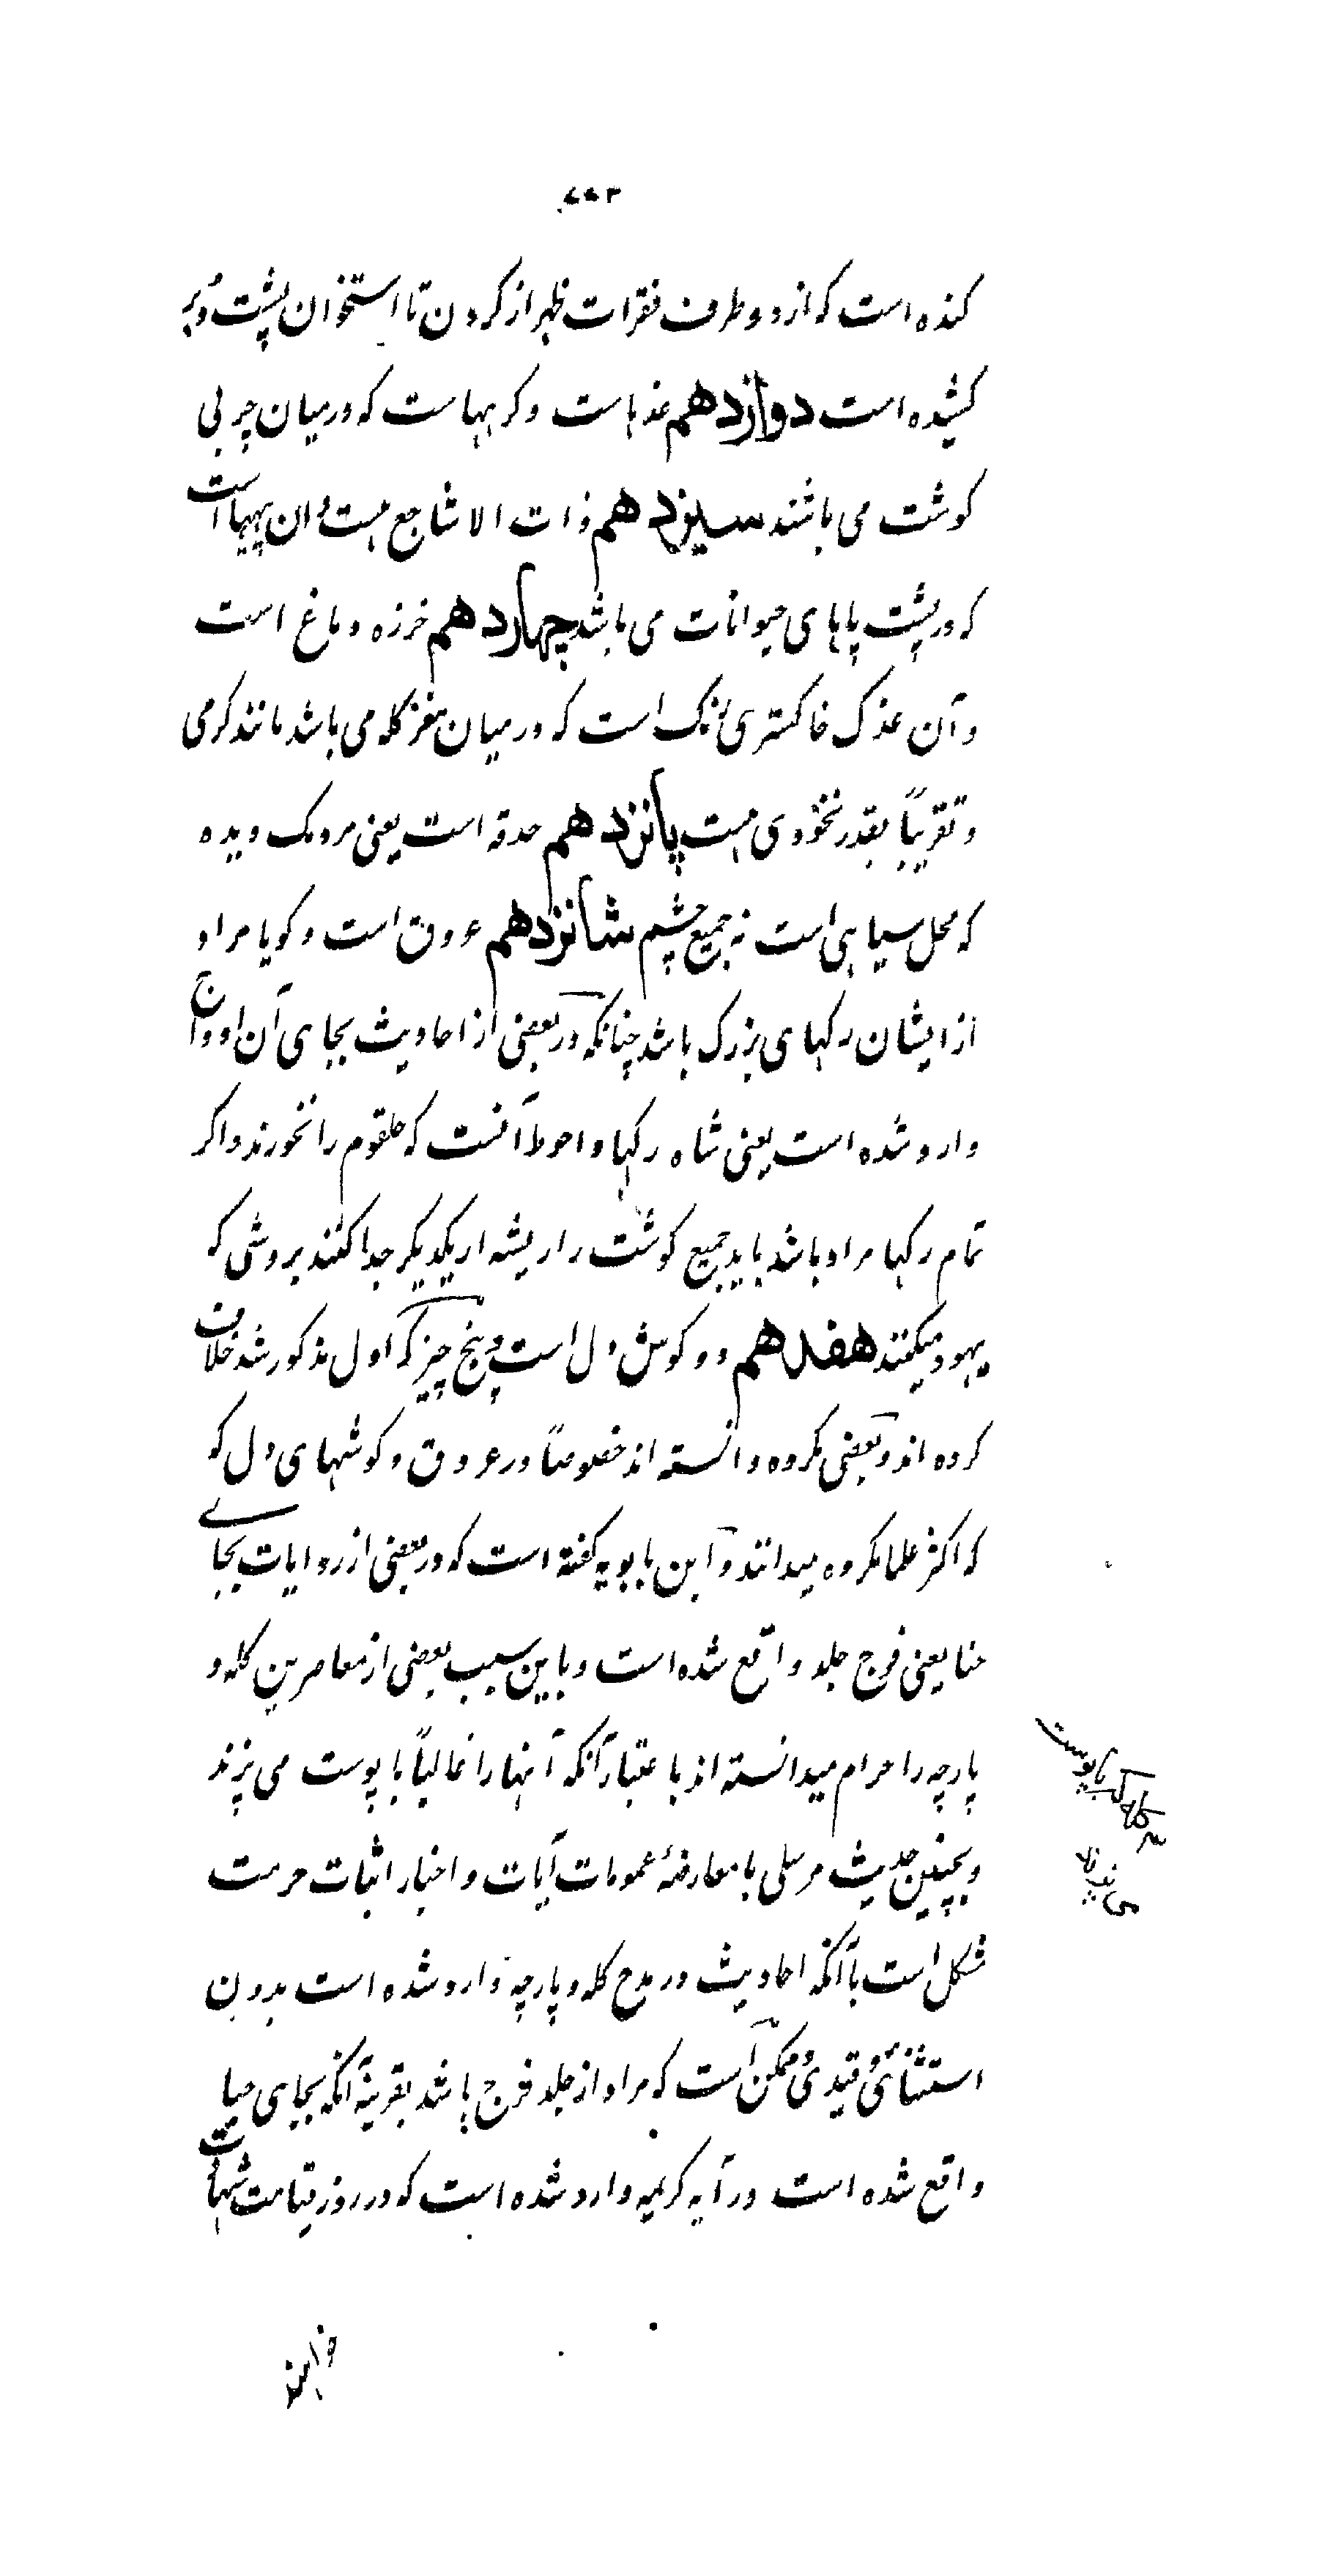 کنده است که از دو طرف فقرات ظهر از کردن تا استخوان پشت دبر
کشیده است دوازدهم غدهاست و کرههاست که در میان چربی
کوشت می باشند سیزدهم ذات الاشاجع هست و ان پیهاست
که در پشت پاهای حیوانات می باشد چهاردهم خرزه دماغ است
و آن غدک خاکستری رنک است که در میان مغز کله می باشد مانند کرمی
و تقریباً بقدر نخودی هست پانزدهم حدقه است یعنی مردمک دیده
که محل سیاهی است نه جمیع چشم شانزدهم عروق است و کویا مراد
از ایشان رکهای بزرک باشد چنانکه در بعضی از احادیث بجای آن اوداج
وارد شده است یعنی شاه رکها و احوط آنست که حلقوم را نخورند و اکر
تمام رکها مراد باشد باید جمیع کوشت را ریشه از یکدیکر جدا کنند بروشی که
یهود میکنند هفدهم دو کوش دل است و پنج چیز که اول مذکور شد خلاف
کرده اند و بعضی مکروه دانسته اند خصوصاً در عروق و کوشهای دل که
که اکثر علما مکروه میدانند و ابن بابویه کفته است که در بعضی از روایات بجای
حنا یعنی فرج جلد واقع شده است و باین سبب بعضی از معاصرین کله و
پارچه را حرام میدانسته اند باعتبار آنکه آنها را غالباً با پوست می پزند
و بچنین حدیث مرسلی با معارضهٔ عمومات آیات و اخبار اثبات حرمت
مشکل است با آنکه احادیث در مدح کله و پارچه وارد شده است بدون
استثنائی و قیدی و ممکن است که مراد از جلد فرج باشد بقرینهٔ آنکه بجای حیا
واقع شده است و در آیه کریمه وارد شده است که در روز قیامت شهادت
با پوست
می پزند